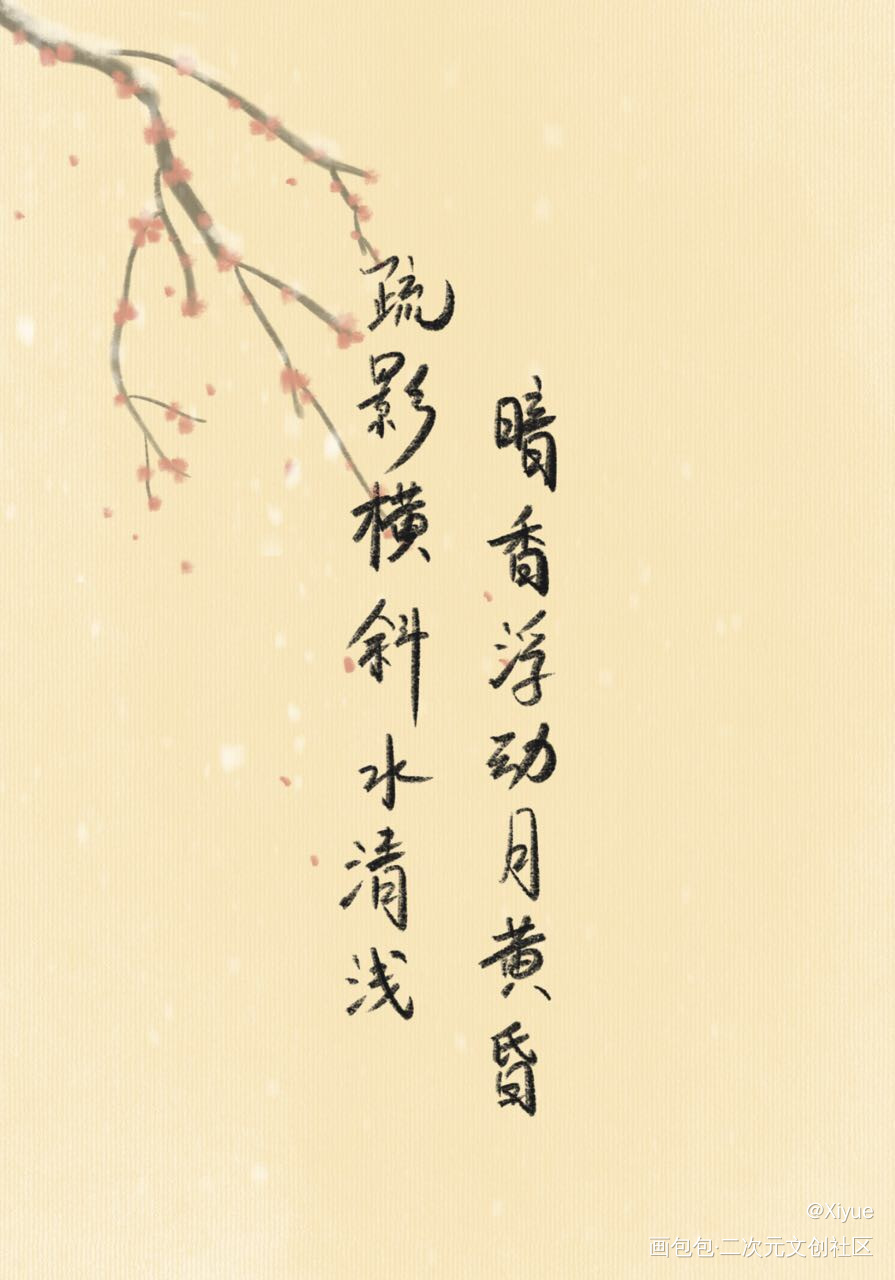 疏影横斜水清浅
暗香浮动月黄昏
@Xiyue
画包包·二次元文创社区